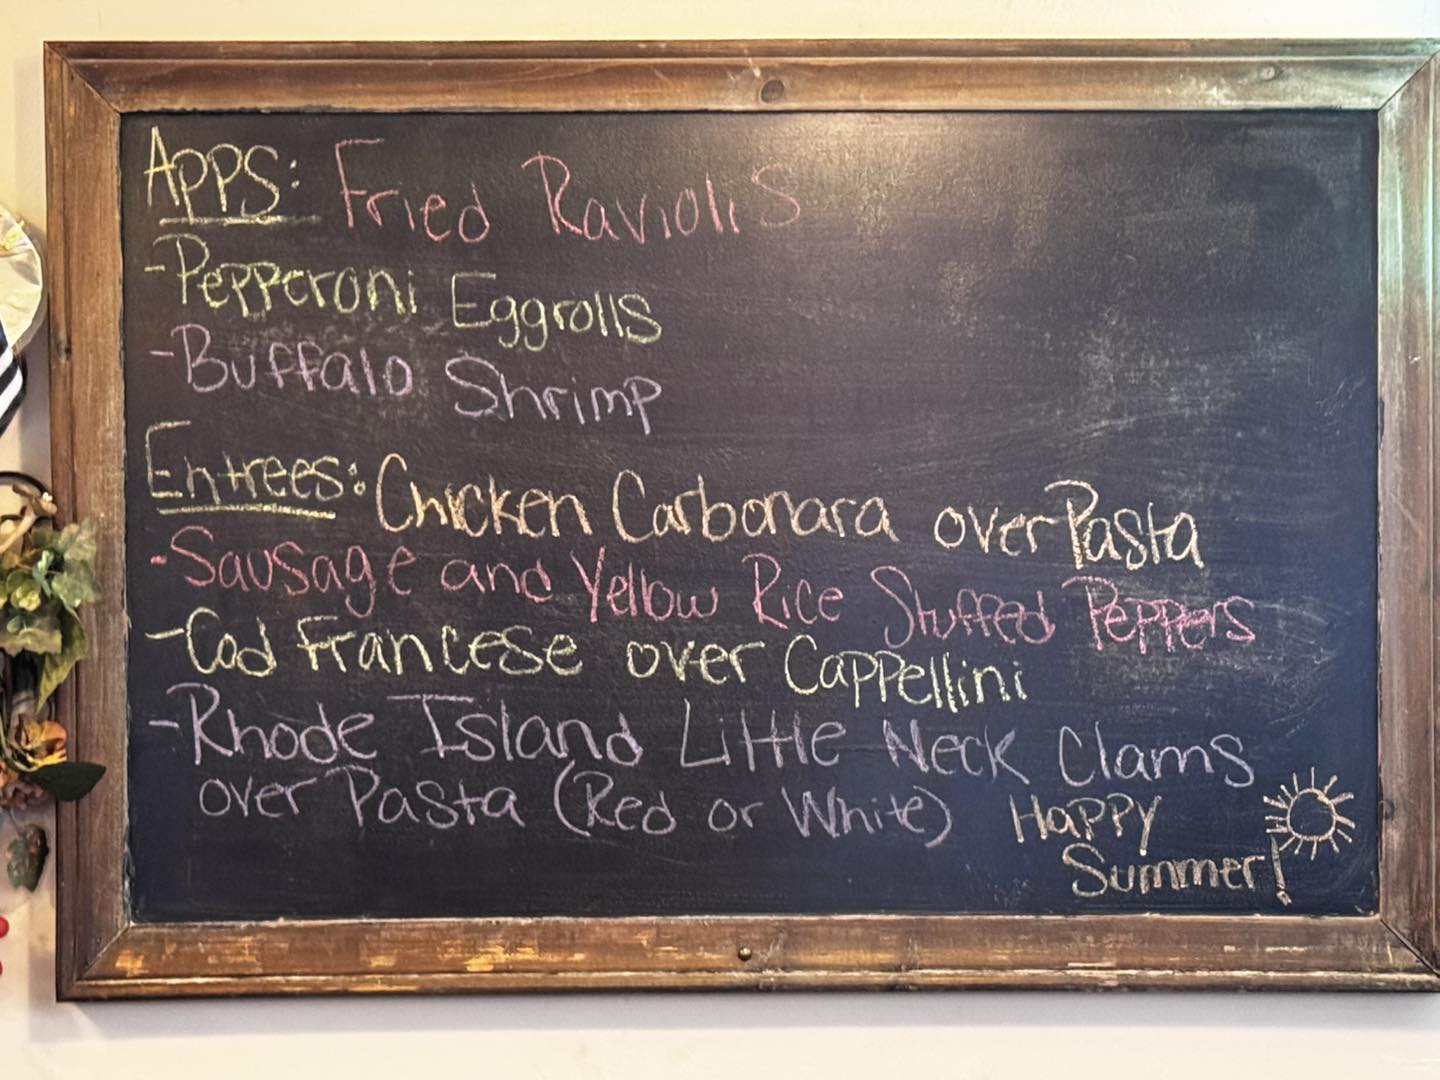 Apps: Fried Raviolis
-Pepperoni Eggrolls
-Buffalo Shrimp
Entrees: Chicken Carbonara over Pasta
-Sausage and Yellow Rice Stuffed Peppers
-Cod Francese over Cappellini
-Rhode Island Little Neck Clams
over Pasta (Red or White)
Happy
Summer!